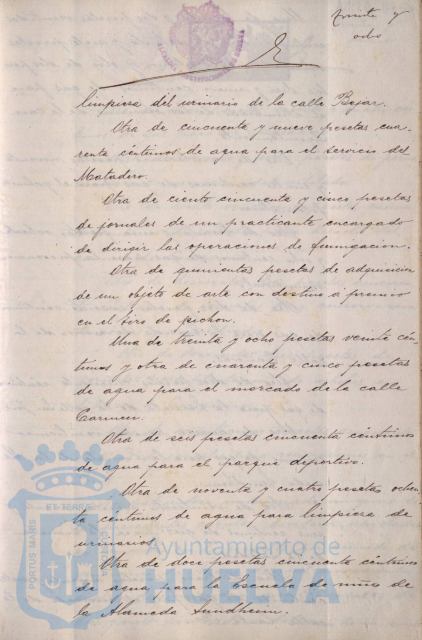 treinta y
ocho
limpieza del urinario de la calle Bejar.
Otra de cincuenta y nueve pesetas cua-
renta céntimos de agua para el servicio del
Matadero.
Otra de ciento cincuenta y cinco pesetas
de jornales de un practicante encargado
de dirigir las operaciones de fumigacion.
Otra de quinientas pesetas de adquisicion
de un objeto de arte con destino á premio
en el tiro de pichon.
Una de treinta y ocho pesetas veinte cén-
timos y otra de cuarenta y cinco pesetas
de agua para el mercado de la calle
Carmen.
Otra de seis pesetas cincuenta céntimos
de agua para el parque deportivo.
Otra de noventa y cuatro pesetas ochen-
ta céntimos de agua para limpieza de
urinarios.
Otra de doce pesetas cincuenta céntimos
de agua para la Escuela de niños de
la Alameda Sundheim.
PORTUS MARIS
ET TERRAE
CUSTODIA
Ayuntamiento de
HUELVA